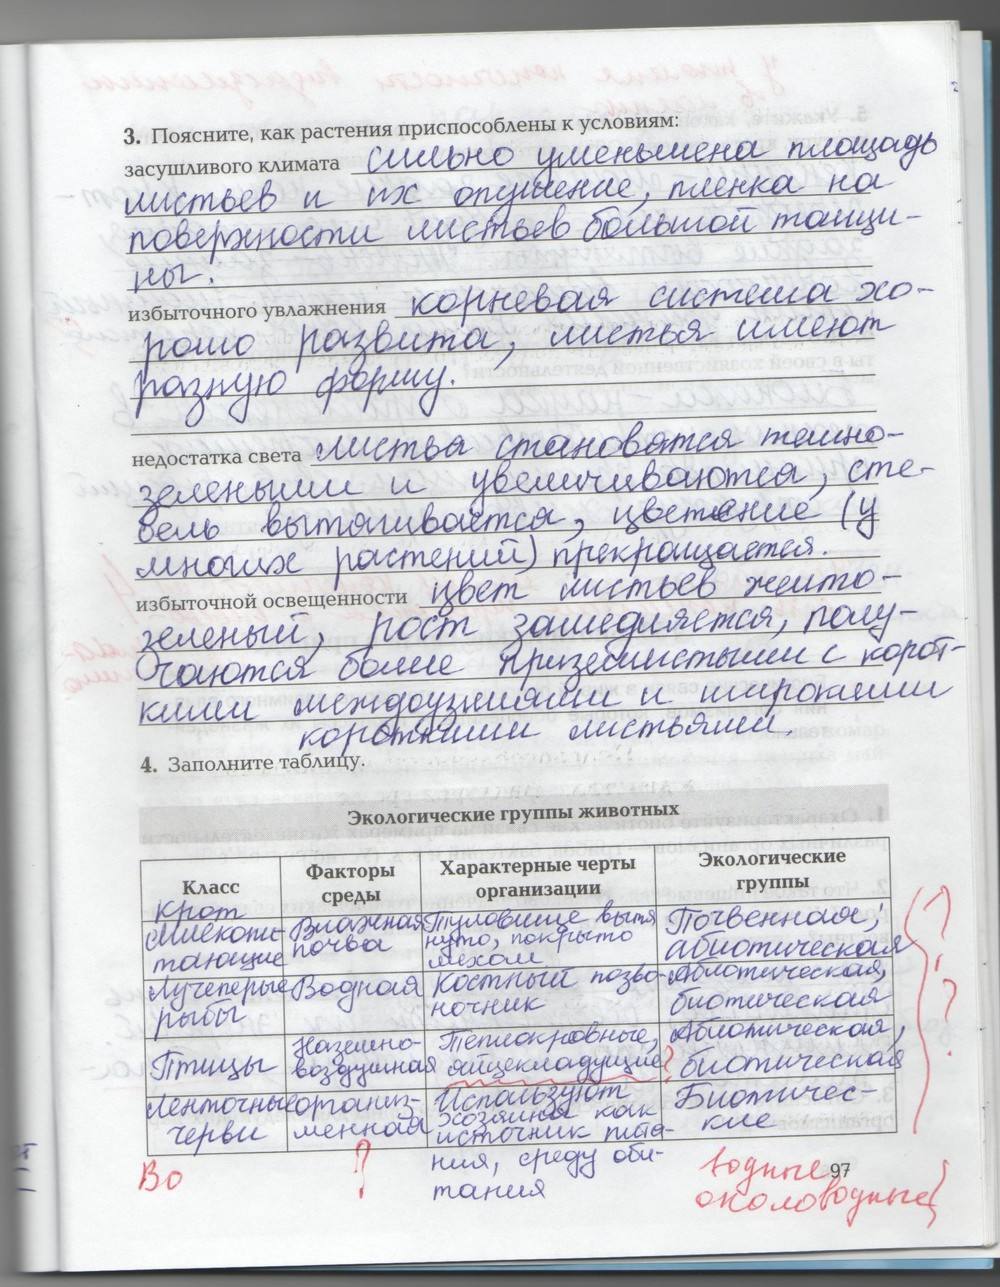 3. Поясните, как растения приспособлены к условиям:
засушливого климата сильно уменьшена площадь
листьев и их опушение, пленка на
поверхности листьев большой толщи-
ны.
избыточного увлажнения корневая система хо-
рошо развита, листья имеют
разную форму.
недостатка света листья становятся темно-
зелеными и увеличиваются, сте-
бель вытягивается, цветение (у
многих растений) прекращается.
избыточной освещенности цвет листьев желто-
зеленый, рост замедляется, полу-
чаются более приземистыми с корот-
кими междоузлиями и широкими
короткими листьями.
4. Заполните таблицу.
Экологические группы животных
Класс Факторы среды Характерные черты организации Экологические группы
Крот
Млекопи-
тающие
Влажная
почва
Туловище вытя
нуто, покрыто
мехом
Почвенная;
абиотическая
Лучеперые
рыбы
Водная
Костный позво-
ночник
Абиотическая,
биотическая
Птицы
Наземно-
воздушная
Теплокровные,
яйцекладущие?
Абиотическая,
биотическая
Ленточные
черви
организ-
менная
Используют
хозяина как
источник пита-
ния, среду оби-
тания
Биотичес-
кие
?
?
Во
?
водные
околоводные
97